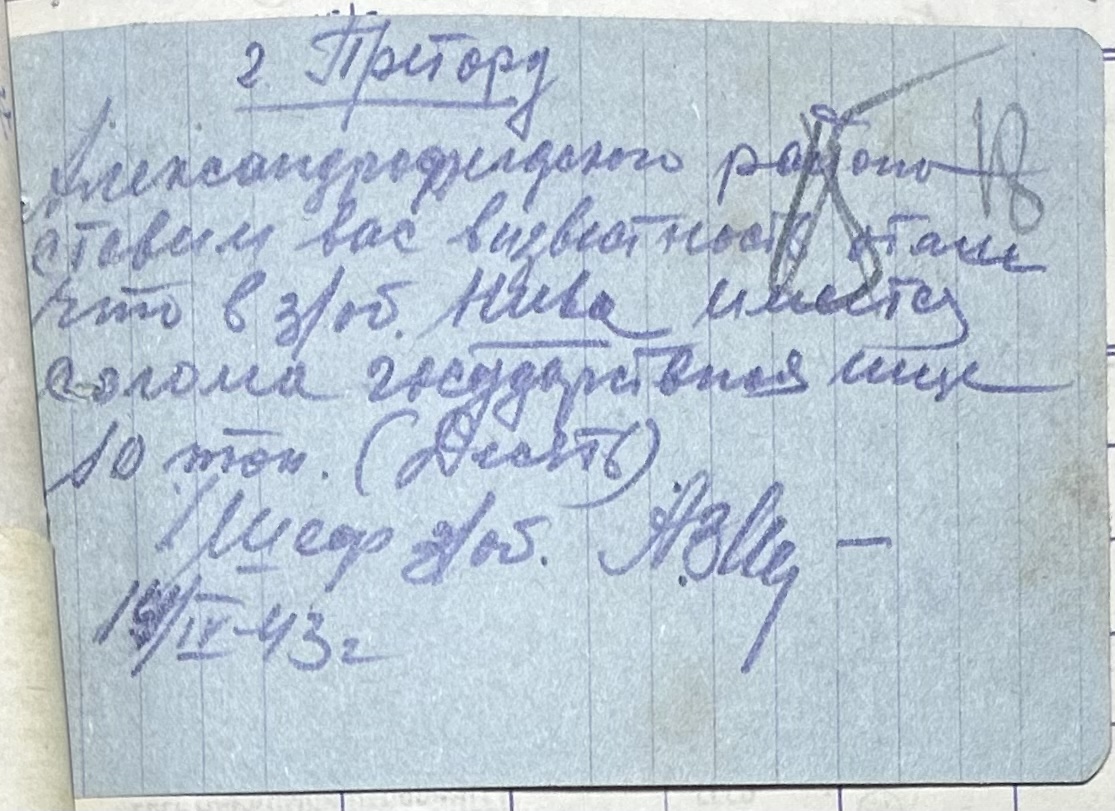 г. Претору
Александрфельдского района
ставим вас визвестность отом
что в з/об. Нива имеется
солома государствная ище
10 тон. (Десять)
Шеф з/об.
15/IV-43г
18